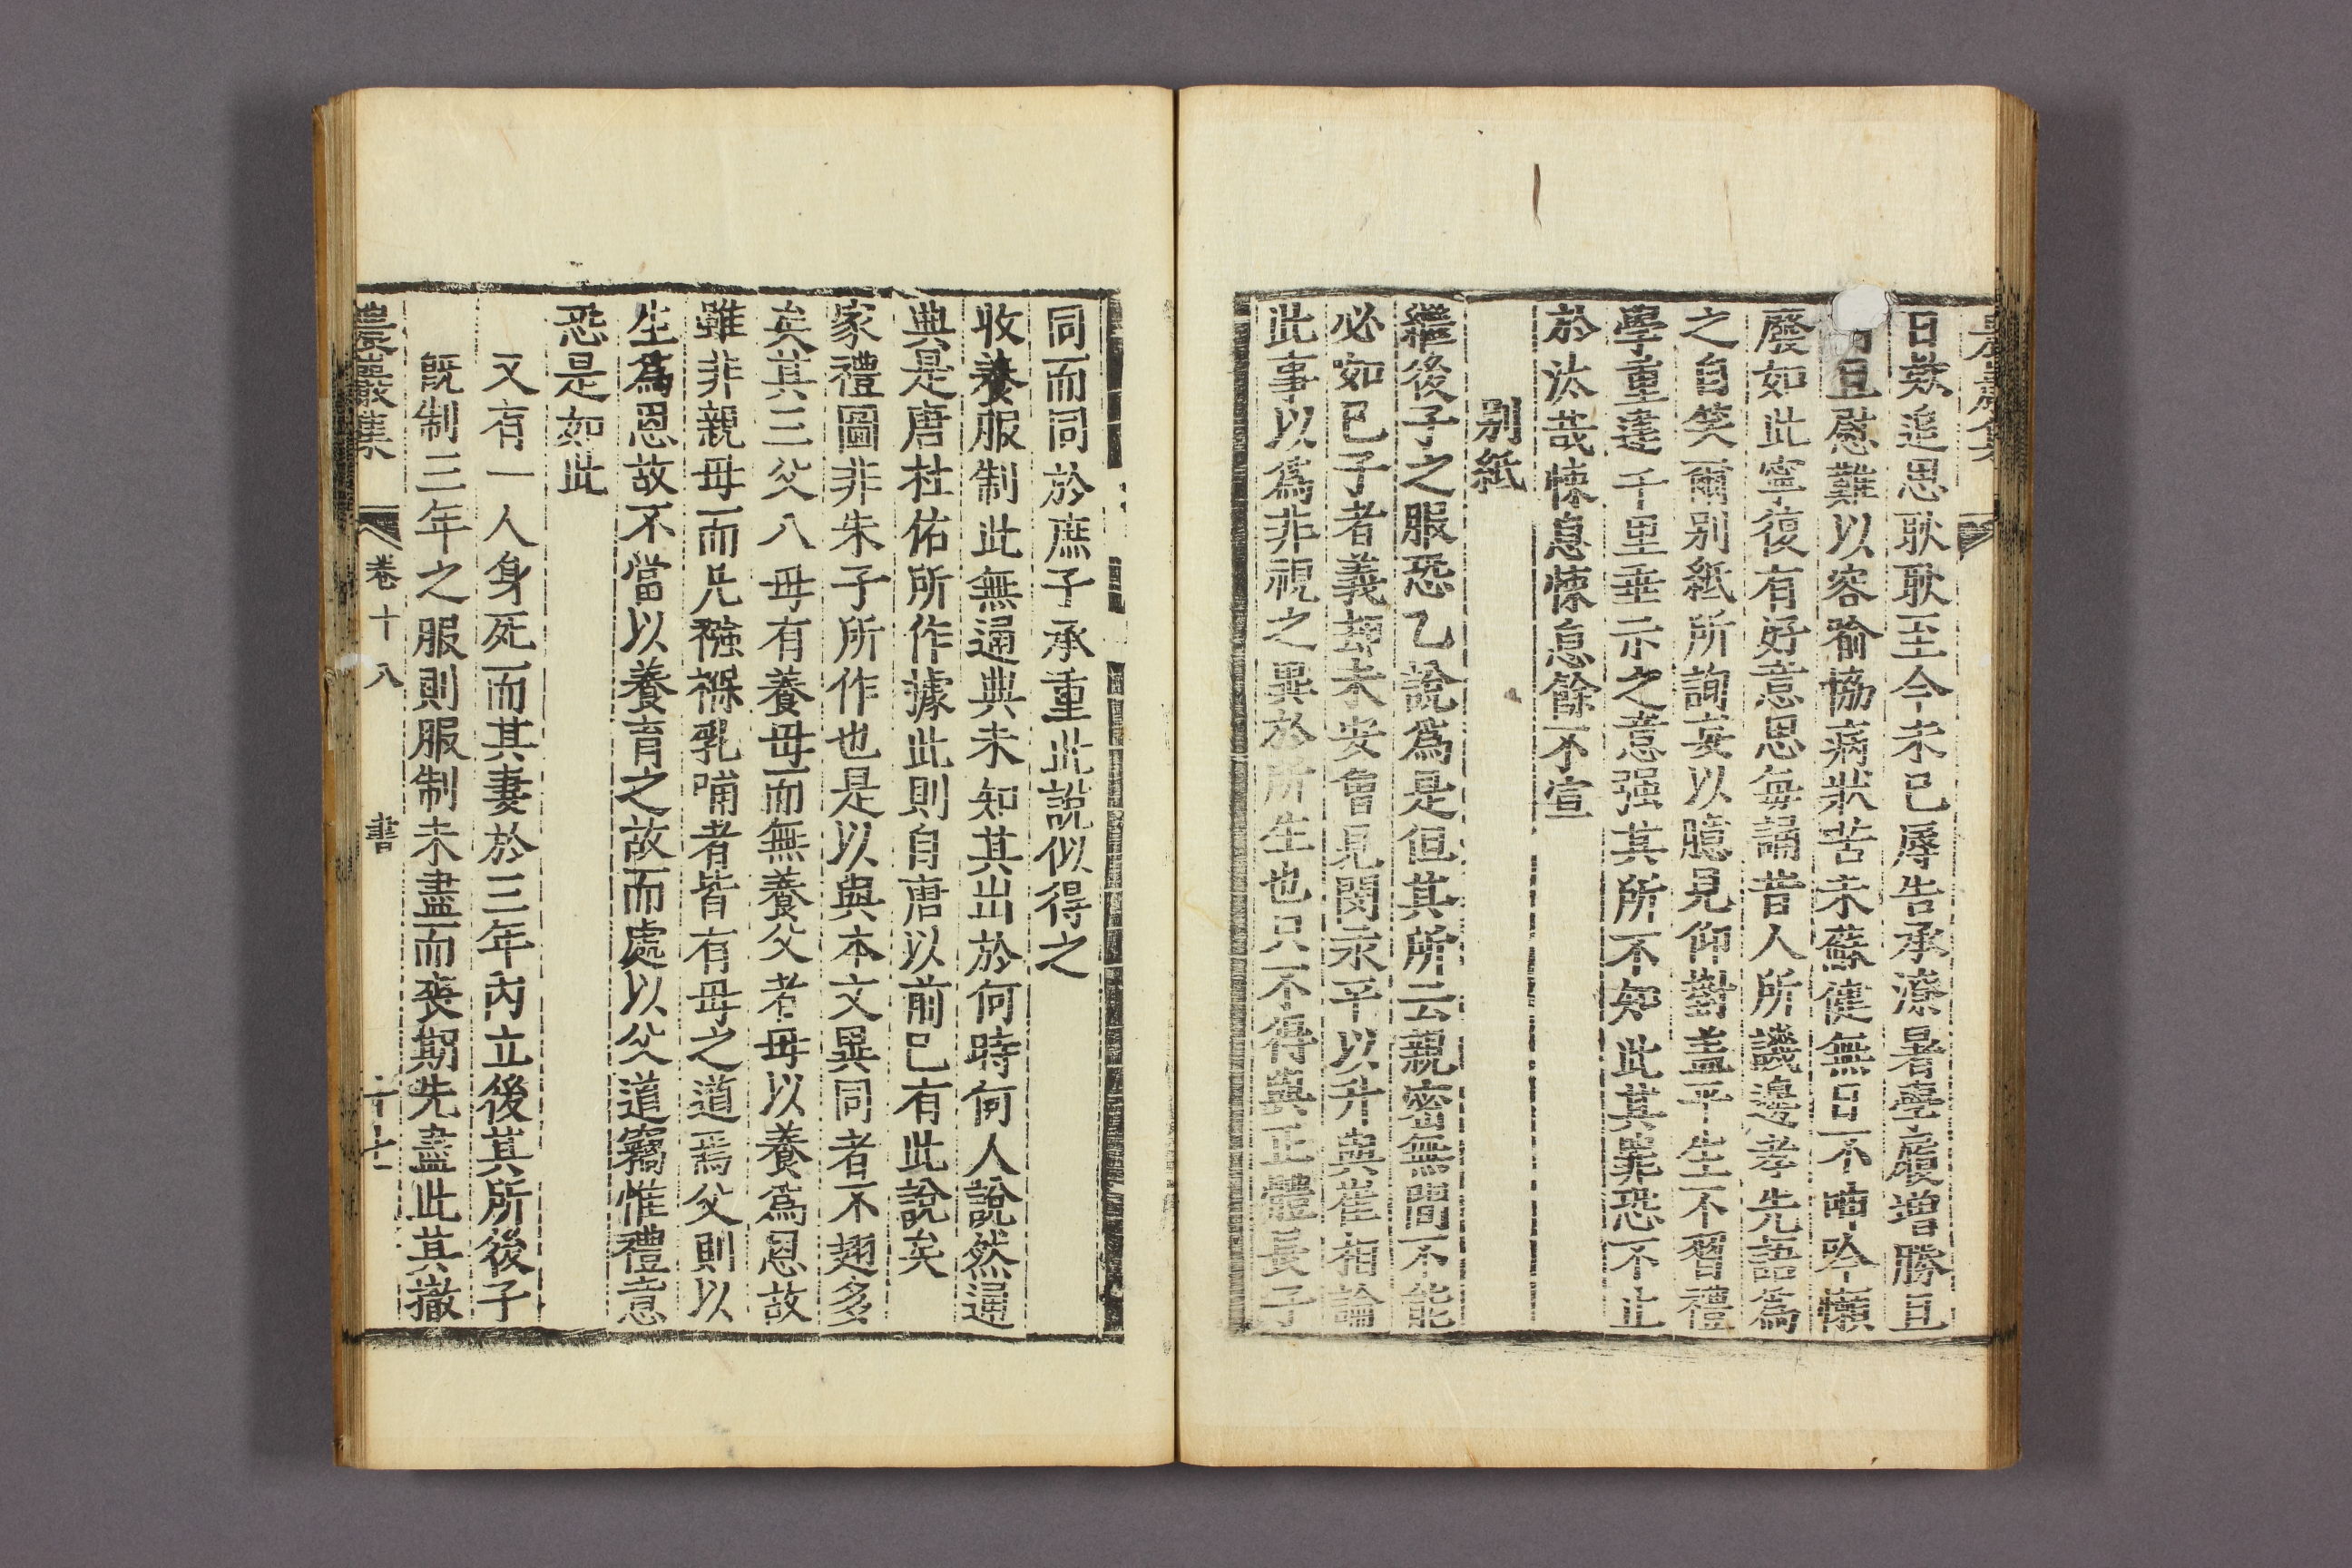 日歎追思耿耿至今未已辱告承潦暑尊履增勝且
且慰難以容喻協病狀苦未蘇健無日不呻吟懶
廢如此寧復有好意思每誦昔人所譏邊孝先語爲
之自笑爾别紙所詢妄以臆見仰對盖平生不習禮
學重違千里垂示之意强其所不知此其罪恐不止
於汰哉悚息悚息餘不宣
别紙
繼後子之服恐乙說爲是但其所云親密無間不能
必如己子者義頗未安曾見閔永平以升與崔相論
此事以爲非視之異於所生也只不得與正體長子
同而同於庶子承重此說似得之
收養服制此無通典未知其出於何時何人說然通
典是唐杜佑所作據此則自唐以前已有此說矣
家禮圖非朱子所作也是以與本文異同者不翅多
矣其三父八母有養母而無養父者母以養爲恩故
雖非親母而凡襁褓乳哺者皆有母之道焉父則以
生爲恩故不當以養育之故而處以父道竊惟禮意
恐是如此
又有一人身死而其妻於三年內立後其所後子
旣制三年之服則服制未盡而喪期先盡此其撤
農巖集 卷十八 書 十七